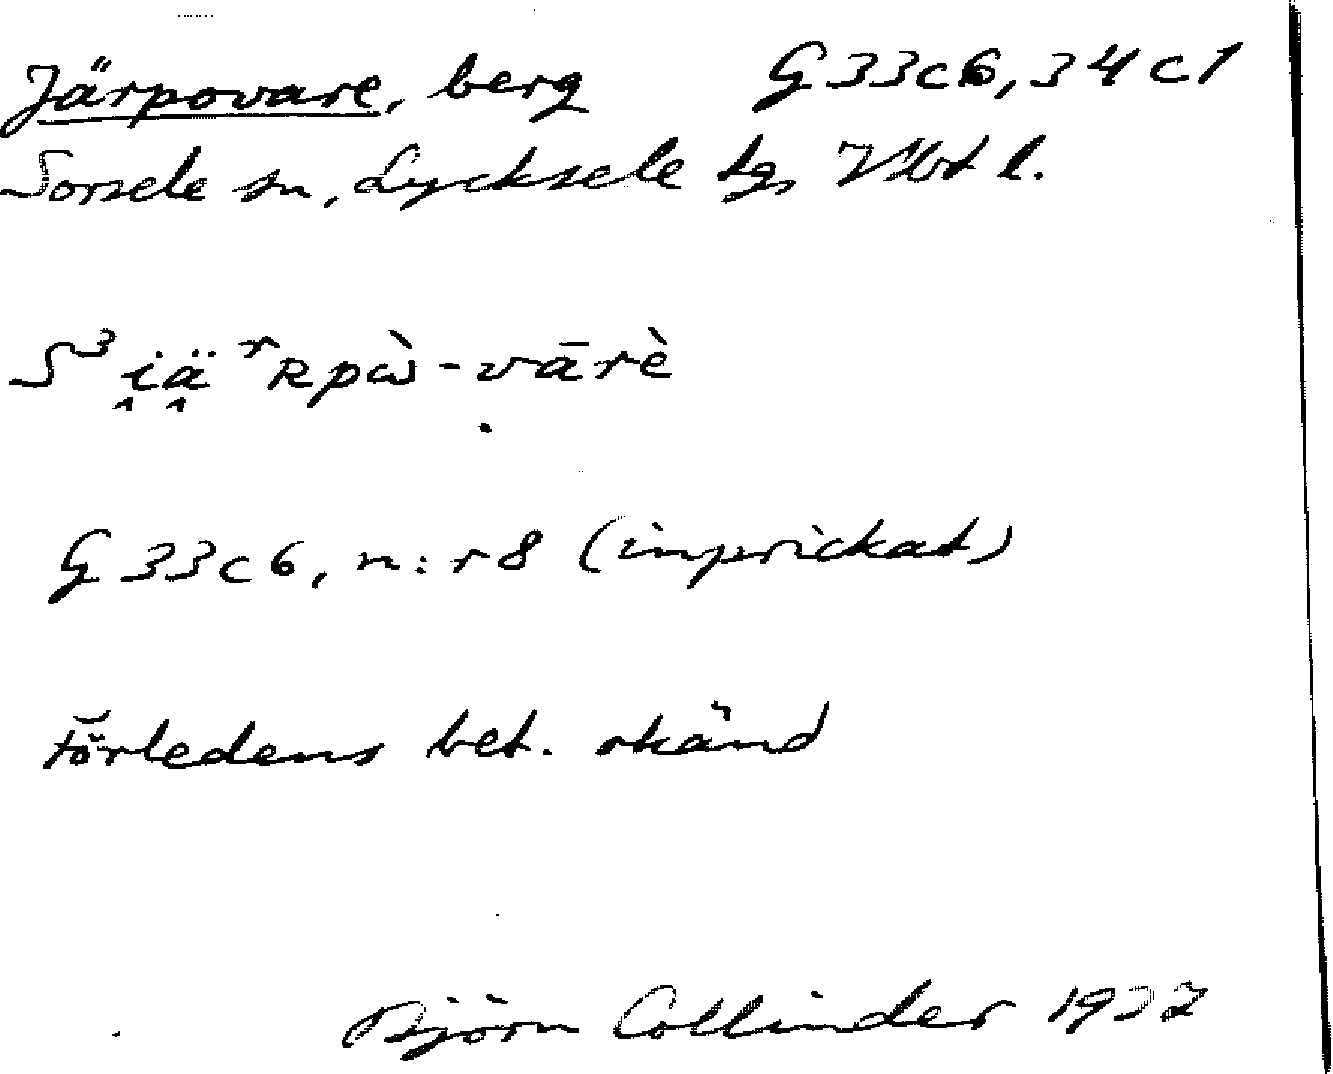 Järpovare, berg G 33c6, 34c1
Sorsele sn, Lycksele tg, Vbt l.
S³ i̭ä̭ ʳʀpὼ-vārè
G 33c6, n:r 8 (inprickat)
Förledens bet. okänd
Björn Collinder